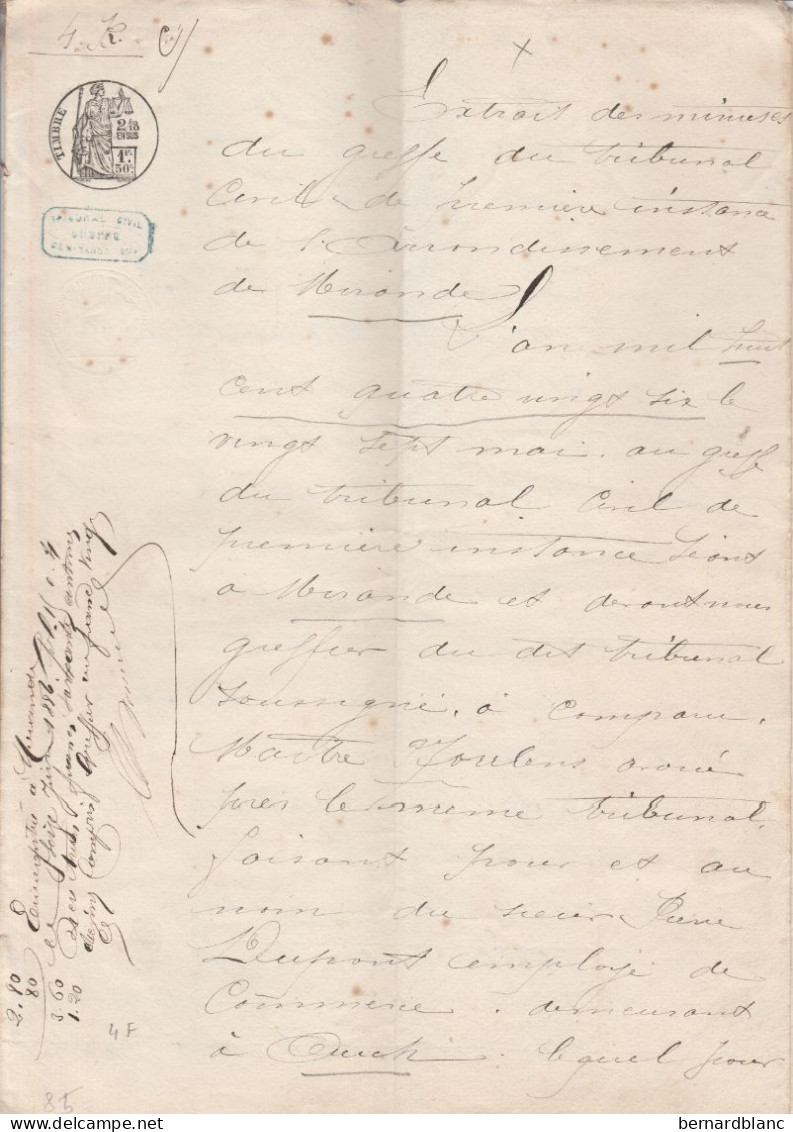 4 R.
TIMBRE
2/10
EN SUS
1F.
50C.
TRIBUNAL CIVIL
GREFFE
Extrait des minutes
du greffe du tribunal
Civil de première instance
de l'Arrondissement
de Mirande
L'an mil huit
cent quatre vingt six le
vingt sept mai, au greffe
du tribunal Civil de
première instance séant
à Mirande et devant nous
greffier du dit tribunal
soussigné, à comparu,
Maître Joulens avoué
près le même tribunal,
faisant pour et au
nom du sieur
Dupont employé de
Commerce, demeurant
à Auch lequel pour
Enregistré à Mirande
le juin 1886
francs soixante centimes
compris greffier un franc vingt
2.80
80
3.60
1.20
4F
85
bernardblanc